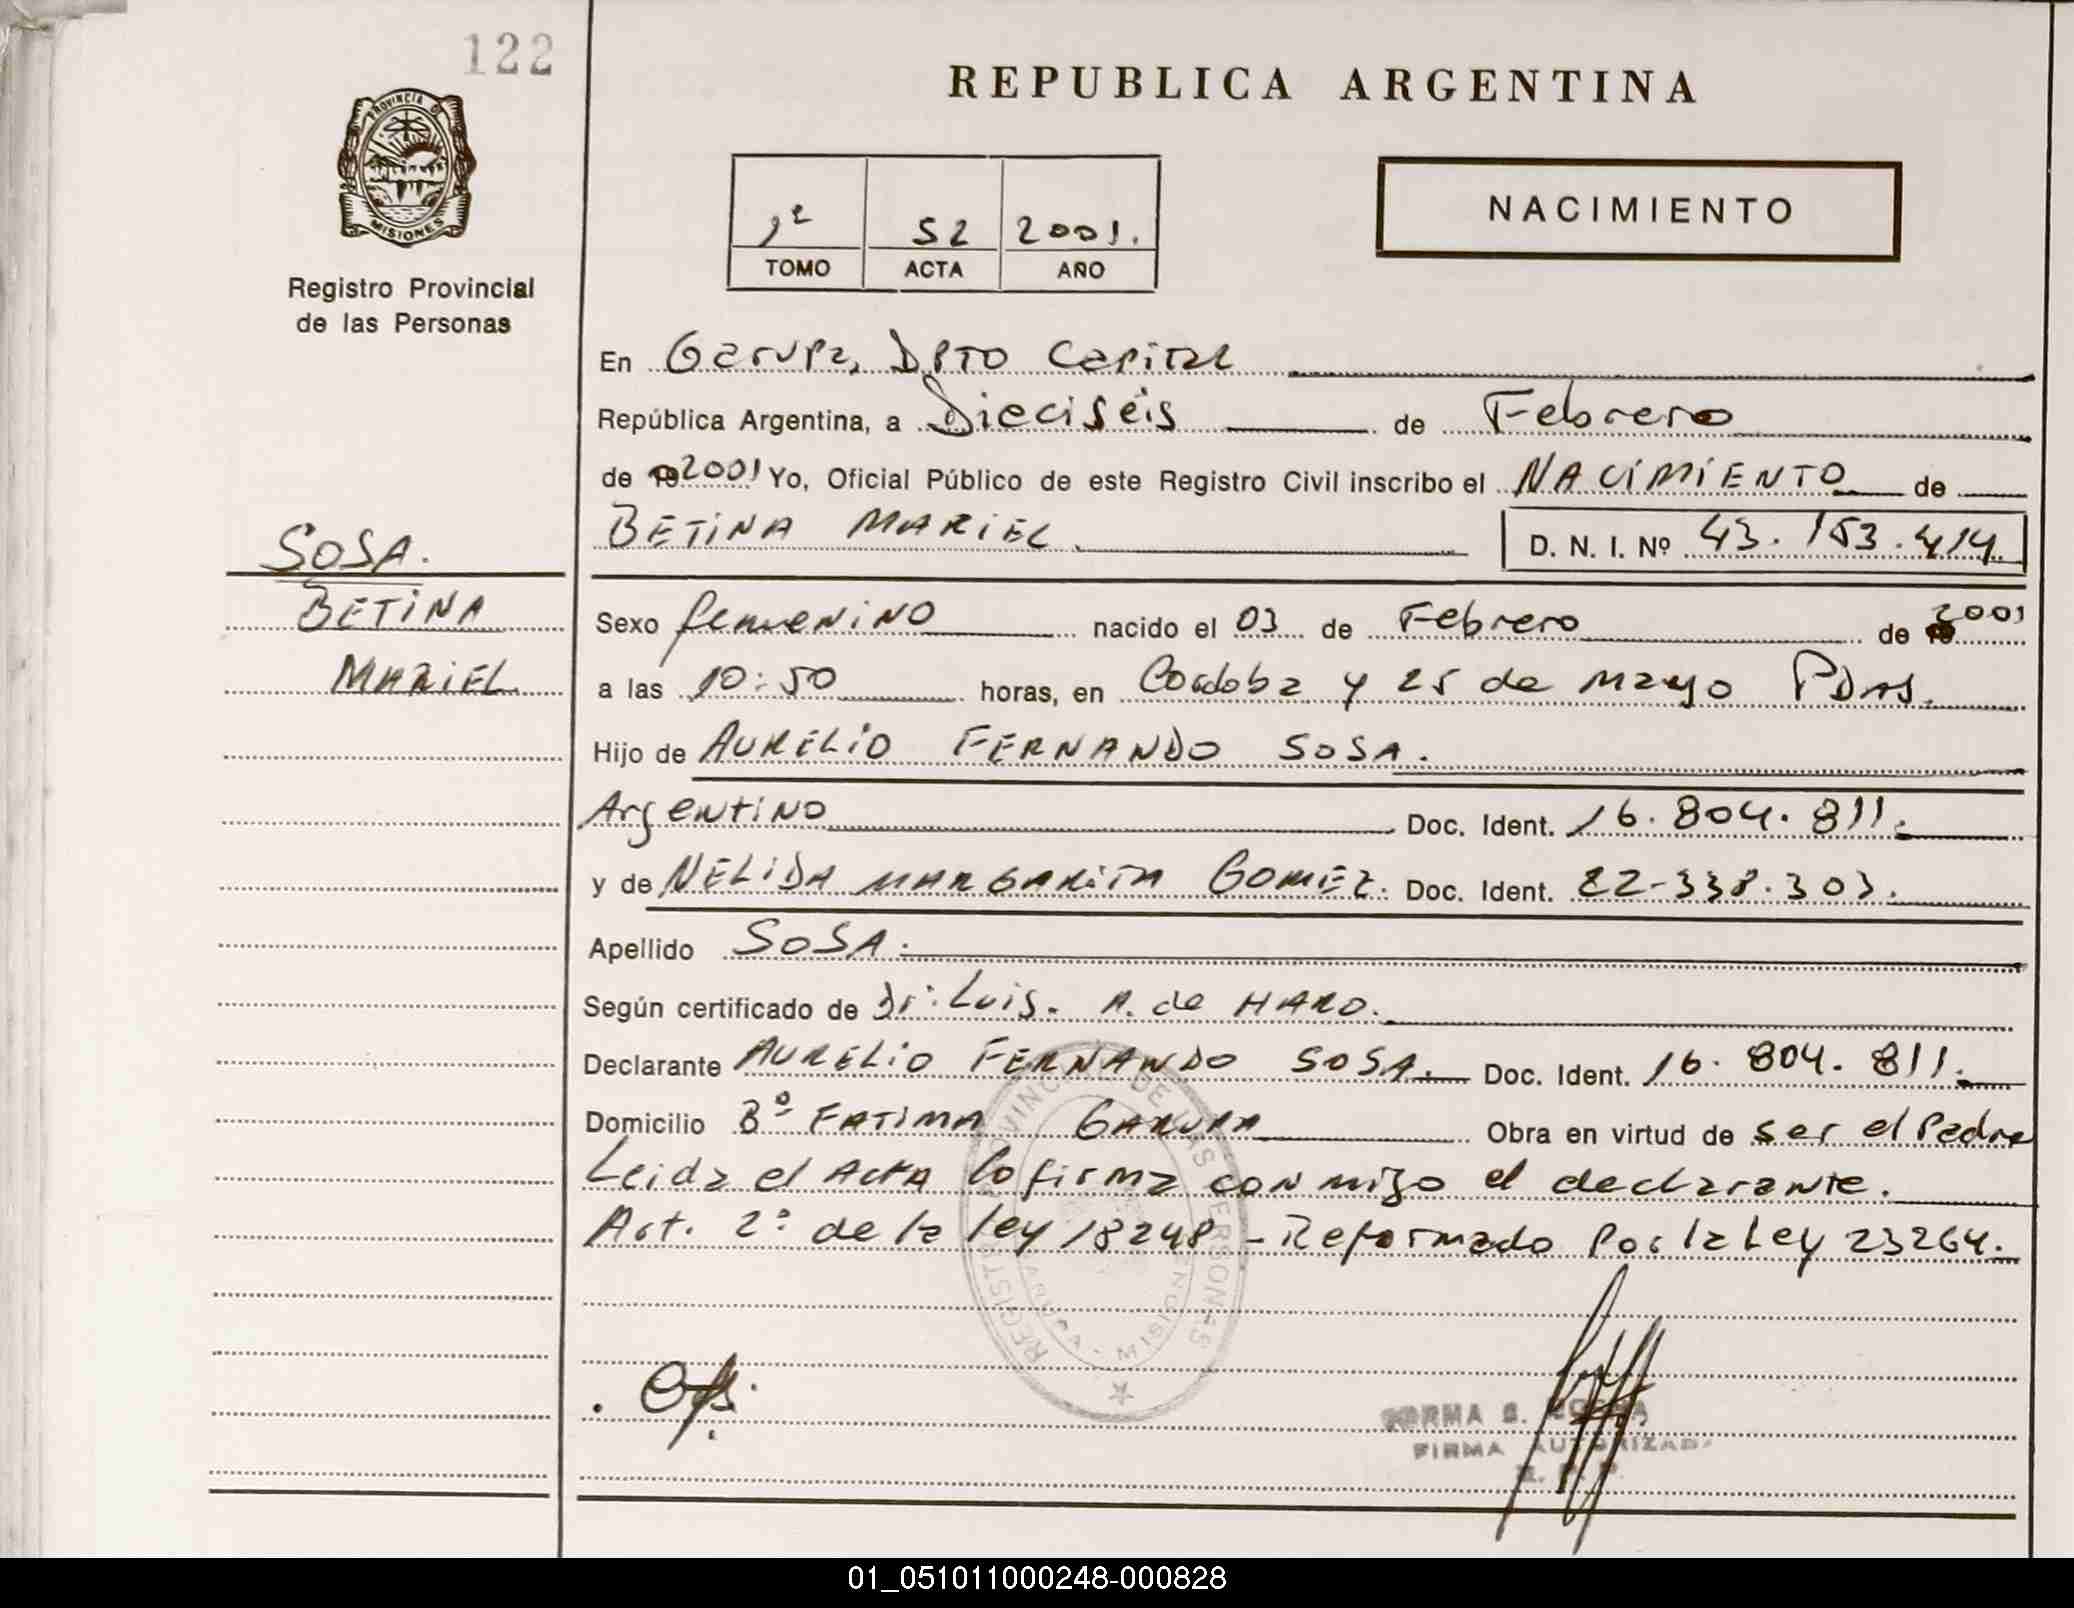 122
REPUBLICA ARGENTINA
PROVINCIA D
MISIONES
Registro Provincial
de las Personas
1º 52 2001.
TOMO ACTA AÑO
NACIMIENTO
En Garupa, DPTO Capital
República Argentina, a Dieciséis de Febrero
de 2001 Yo, Oficial Público de este Registro Civil inscribo el NACIMIENTO de
BETINA MARIEL. D. N. I. Nº 43.153.414
SOSA.
BETINA
MARIEL
Sexo femenino nacido el 03 de Febrero de 2001
a las 10:50 horas, en Cordoba y 25 de mayo Pdas.
Hijo de AURELIO FERNANDO SOSA.
Argentino Doc. Ident. 16.804.811.
y de NELIDA MARGARITA GOMEZ. Doc. Ident. 22-338.303.
Apellido SOSA.
Según certificado de Dr: Luis. A. de HARO.
Declarante AURELIO FERNANDO SOSA. Doc. Ident. 16.804.811.
Domicilio Bº FATIMA GARUPA Obra en virtud de ser el Padre
Leida el Acta la firma conmigo el declarante.
Art. 2º de la ley 18248 - Reformado Por la Ley 23264.
REGISTRO PROVINCIAL DE LAS PERSONAS
GARUPA - MISIONES
NORMA S.
FIRMA AUTORIZADA
01_051011000248-000828